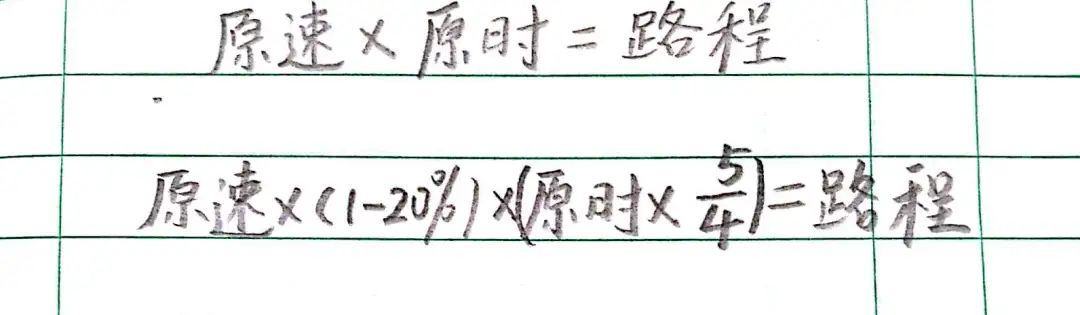 原速×原时=路程
原速×(1-20%)×(原时×5/4)=路程